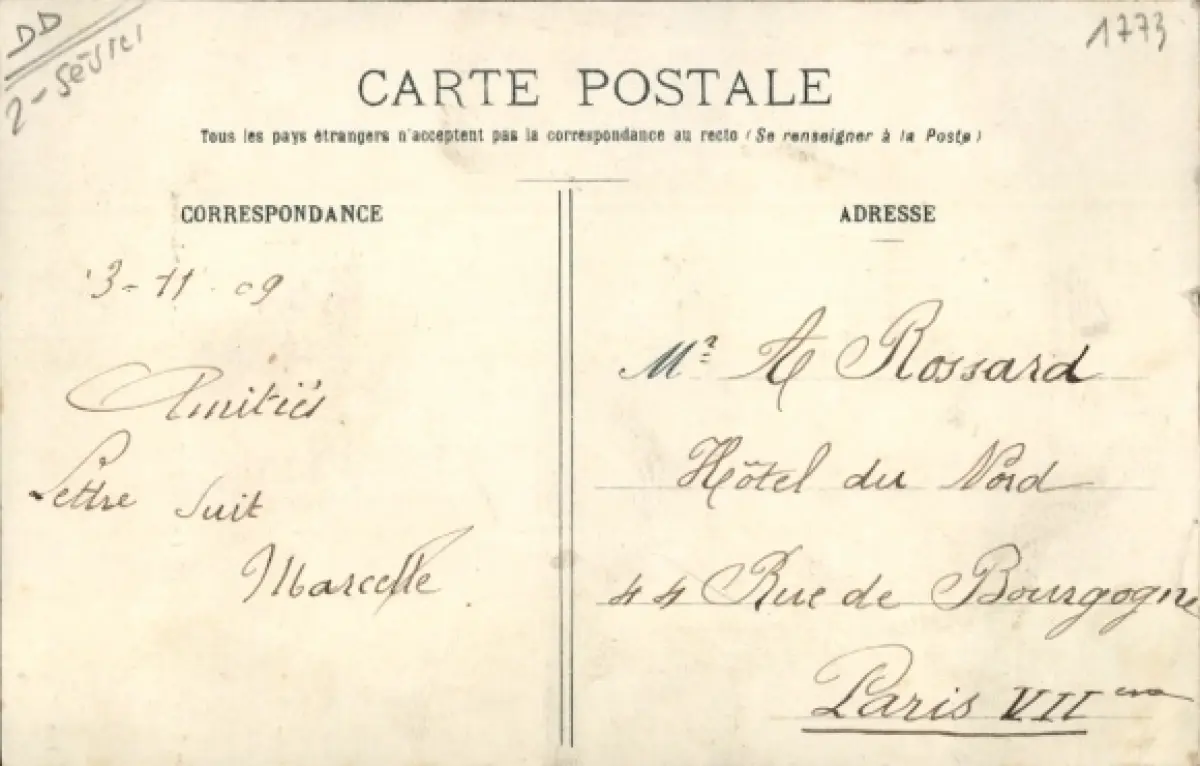 DD
2-Sèvres
1773
CARTE POSTALE
Tous les pays étrangers n'acceptent pas la correspondance au recto (Se renseigner à la Poste)
CORRESPONDANCE
3-11 09
Amitiés
Lettre suit
Marcelle
ADRESSE
Mr A Rossard
Hôtel du Nord
44 Rue de Bourgogne
Paris VIIeme